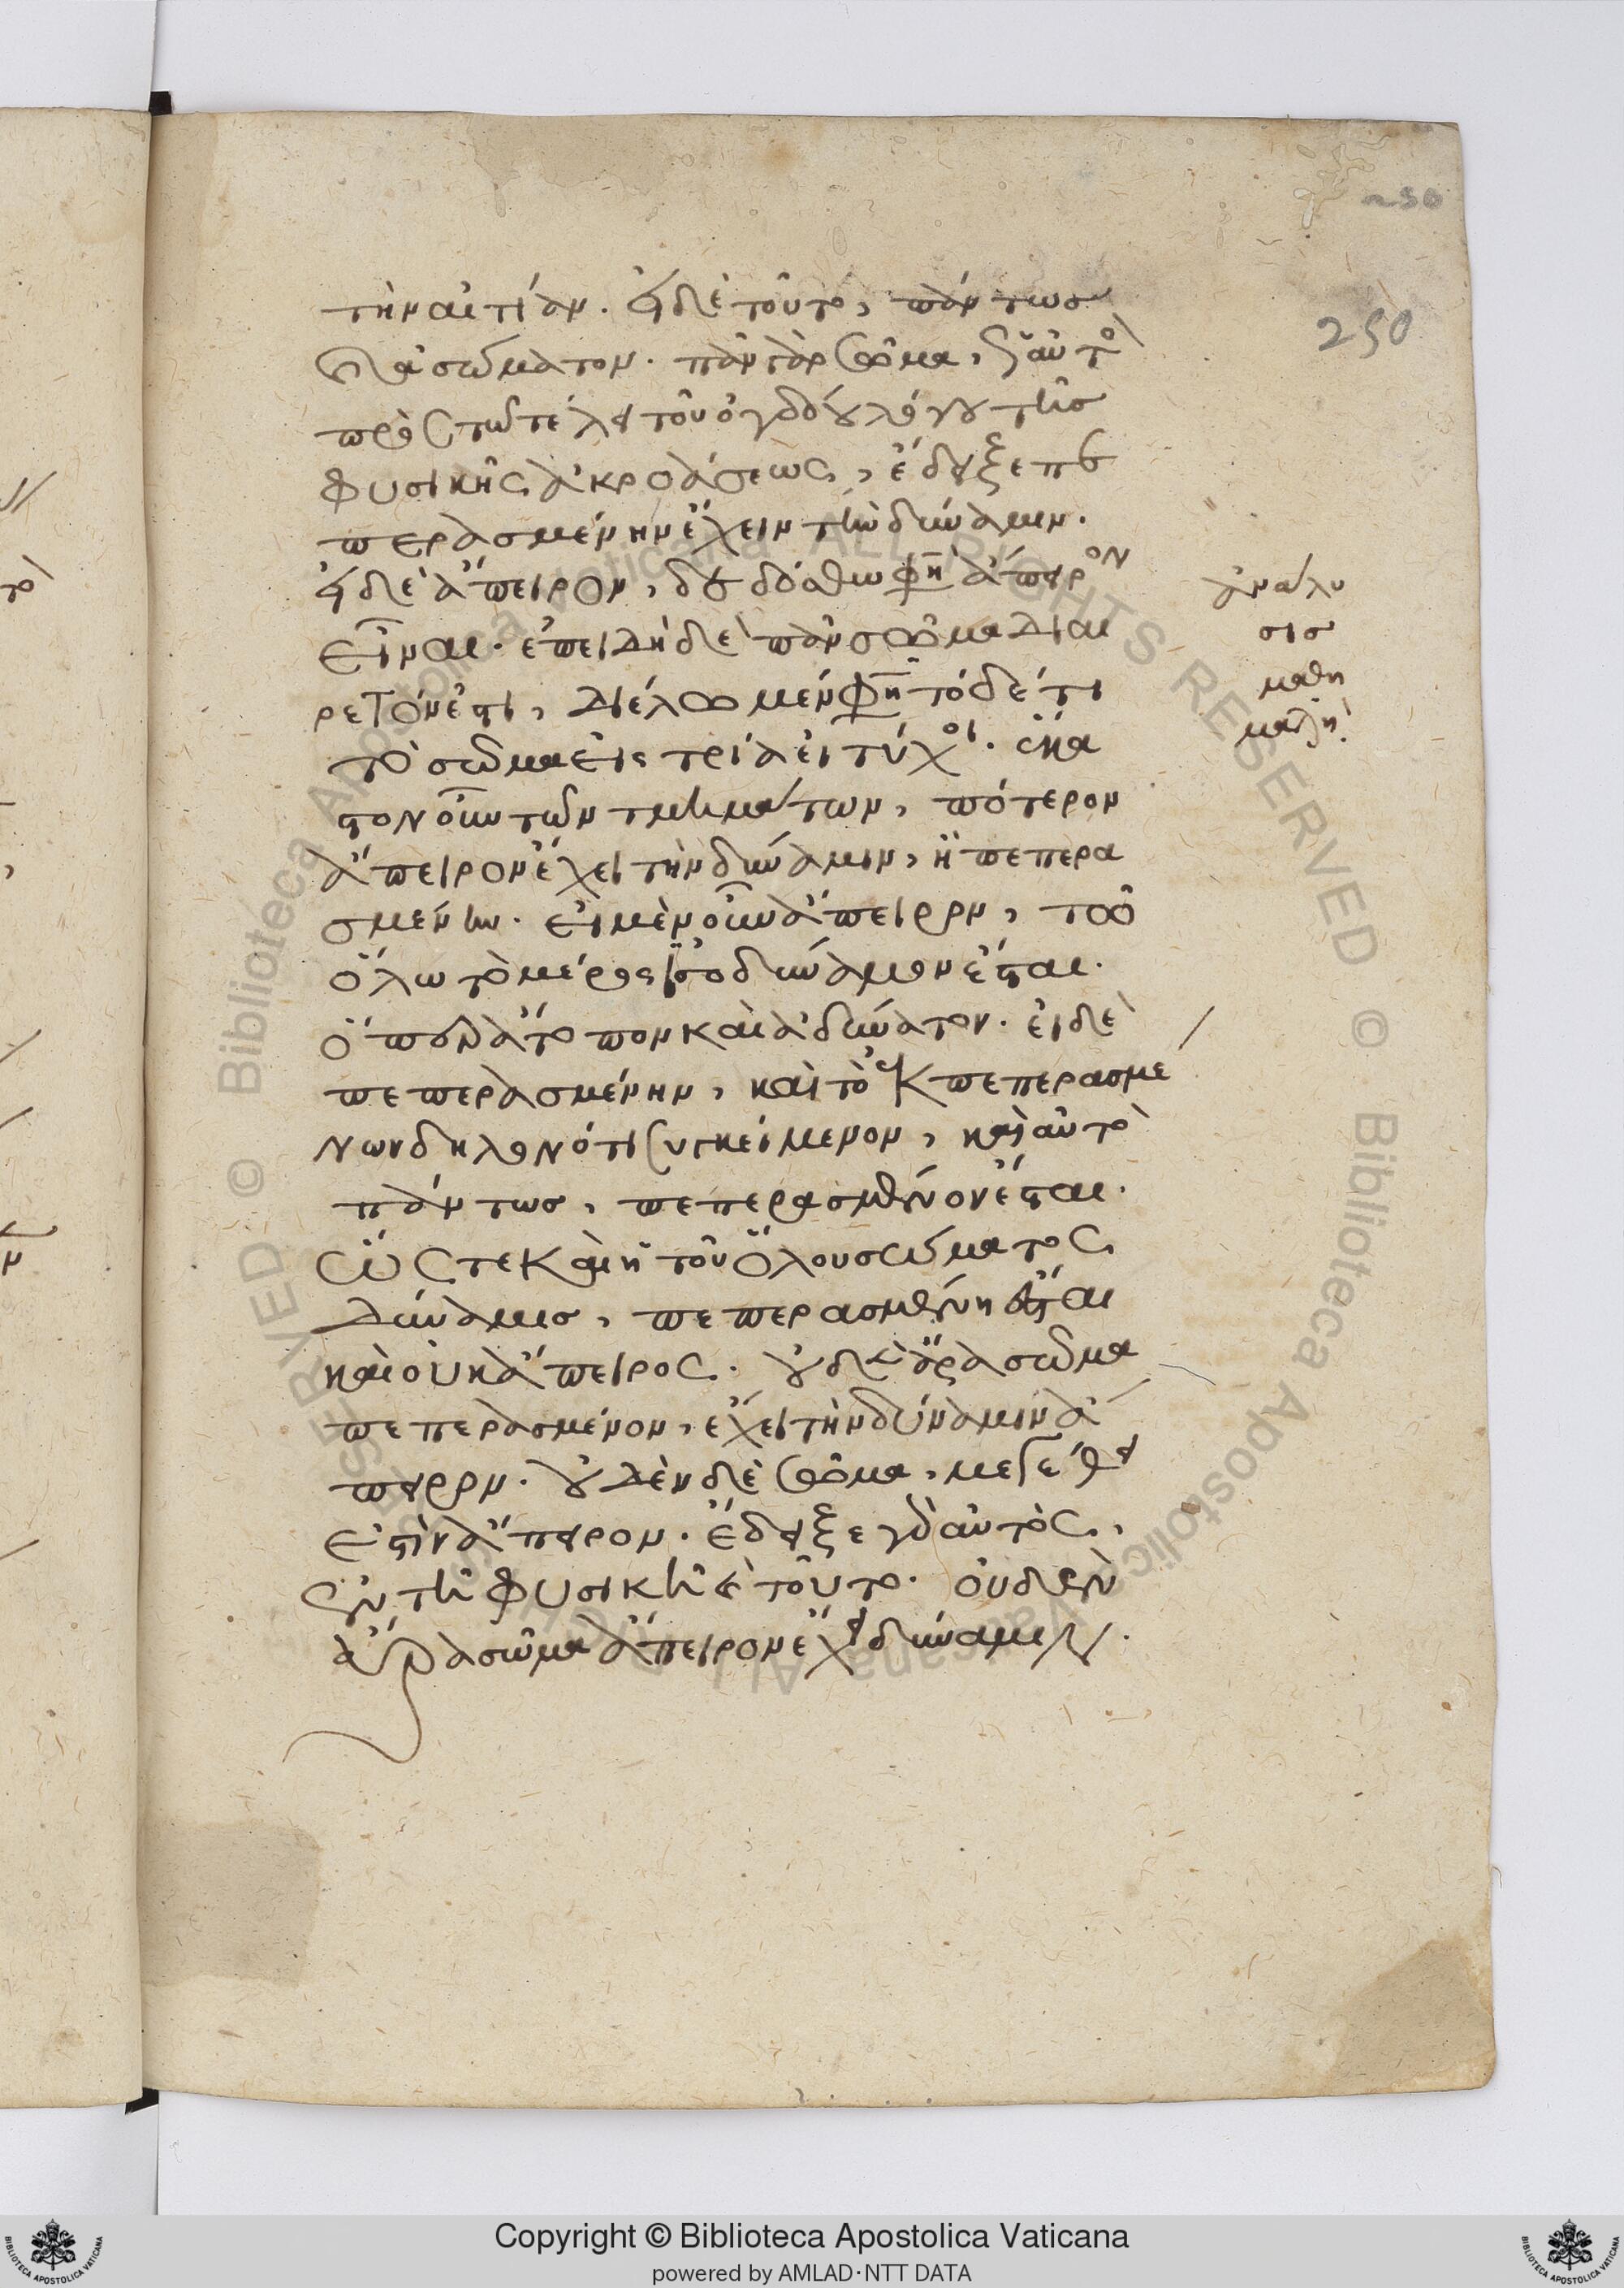 250
250
τὴν αἰτίαν. εἰ δὲ τοῦτο, πάντως
καὶ ἀσώματον. πᾶν γὰρ σῶμα, ὡς αὐτὸ
πρὸς τῶ τέλει τοῦ ὀγδόου λόγου τῆς
φυσικῆς ἀκροάσεως, ἔδειξε πε
περασμένην ἔχειν τὴν δύναμιν.
εἰ δὲ ἄπειρον, δεδόσθω φησὶ ἄπειρον
εἶναι. ἐπειδὴ δὲ πᾶν σῶμα διαι
ρετόν ἐστι, διέλωμεν φησὶ τόδέ τι
τὸ σῶμα εἰς τρία εἰ τύχοι. ἕκα
στον οὖν τῶν τμημάτων, πότερον
ἄπειρον ἔχει τὴν δύναμιν, ἢ πεπερα
σμένην. εἰ μὲν οὖν ἄπειρον, τῶ
ὅλω τὸ μέρος ἰσοδύναμον ἔσται.
ὅπερ ἄτοπον καὶ ἀδύνατον. εἰ δὲ
πεπερασμένην, καὶ τὸ ἐκ πεπερασμέ
νων δηλονότι συγκείμενον, καὶ αὐτὸ
πάντως, πεπερασμένον ἔσται.
ὥστε καὶ ἡ τοῦ ὅλου σώματος
δύναμις, πεπερασμένη ἔσται
καὶ οὐκ ἄπειρος. οὐδὲ ἄρα σῶμα
πεπερασμένον, ἔχει τὴν δύναμιν ἄ
πειρον. οὐδὲν δὲ σῶμα, μεγέθει
ἐστὶν ἄπειρον. ἔδειξε γὰρ αὐτὸς,
ἐν τῆ φυσικῆ καὶ τοῦτο. οὐδὲν
ἄρα σῶμα ἄπειρον ἔχει δύναμιν.
ἀνάλυ
σις
μαθη
ματικὴ